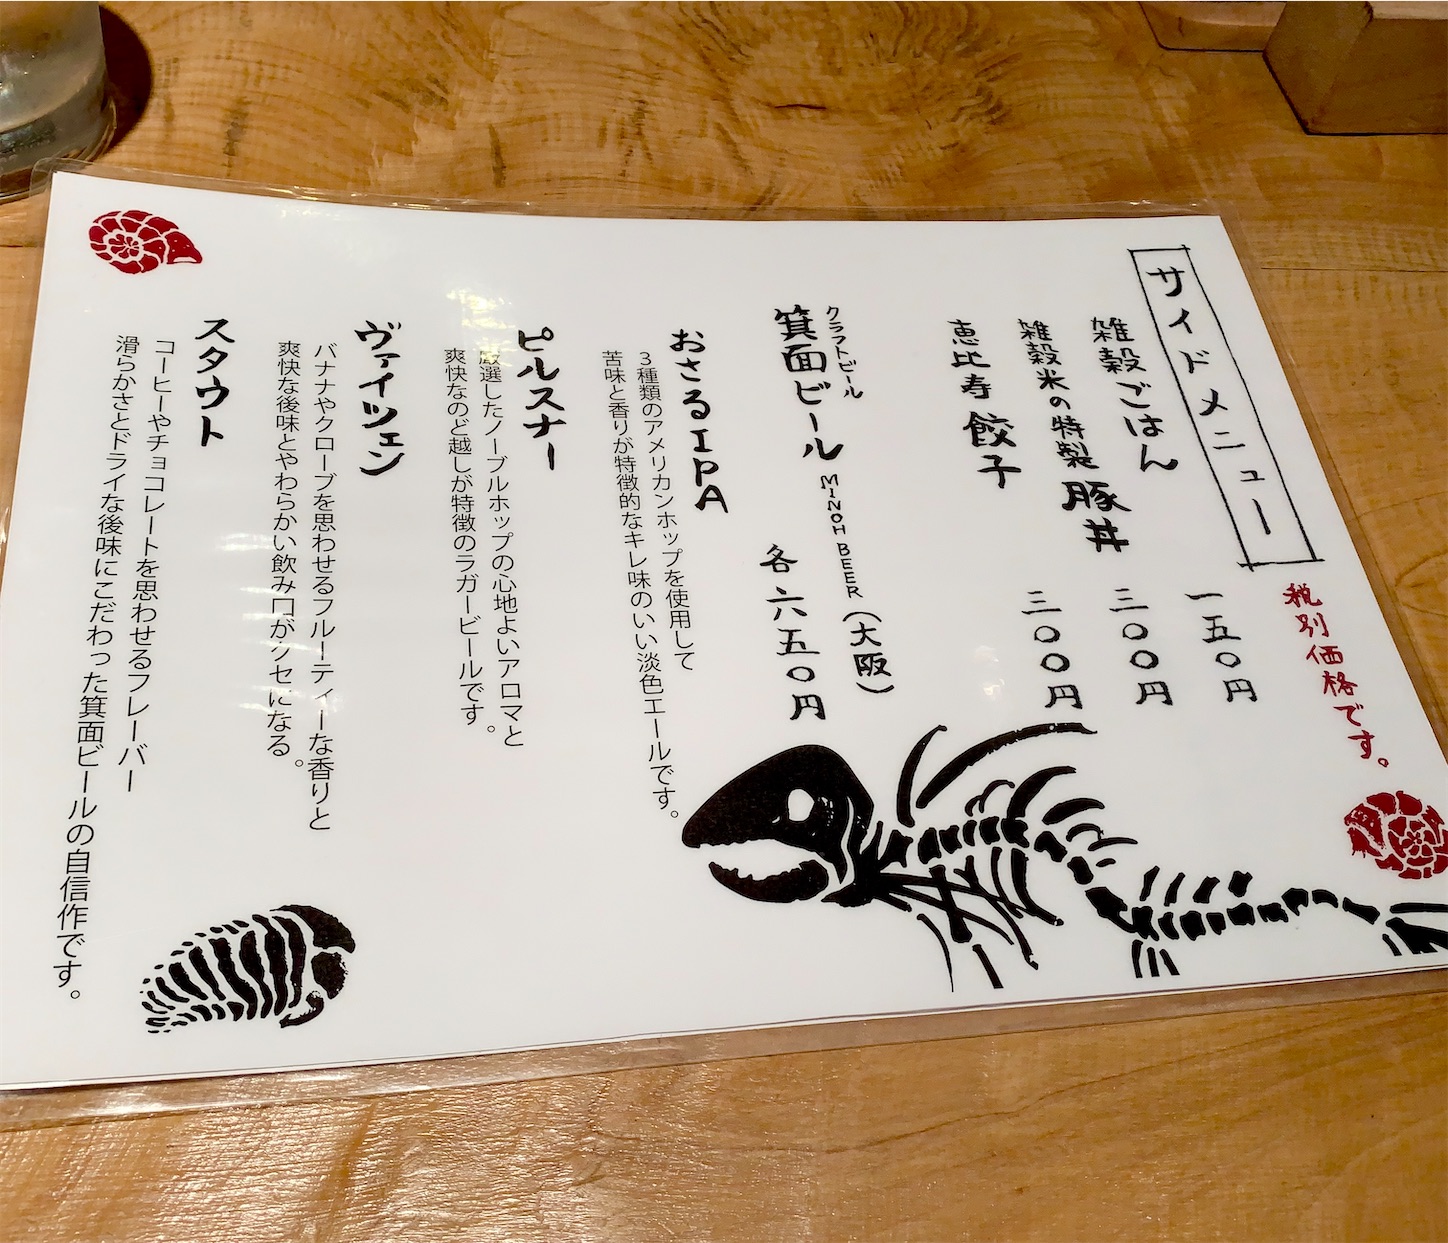 サイドメニュー
税別価格です。
雑穀ごはん 一五〇円
雑穀米の特製豚丼 三〇〇円
恵比寿餃子 三〇〇円
クララトビール
MINOH BEER（大阪）
箕面ビール 各六五〇円
おさるIPA
3種類のアメリカンホップを使用して
苦味と香りが特徴的なキレ味のいい淡色エールです。
ピルスナー
厳選したノーブルホップの心地よいアロマと
爽快なのど越しが特徴のラガービールです。
ヴァイツェン
バナナやクローブを思わせるフルーティーな香りと
爽快な後味とやわらかい飲み口がクセになる。
スタウト
コーヒーやチョコレートを思わせるフレーバー
滑らかさとドライな後味にこだわった箕面ビールの自信作です。